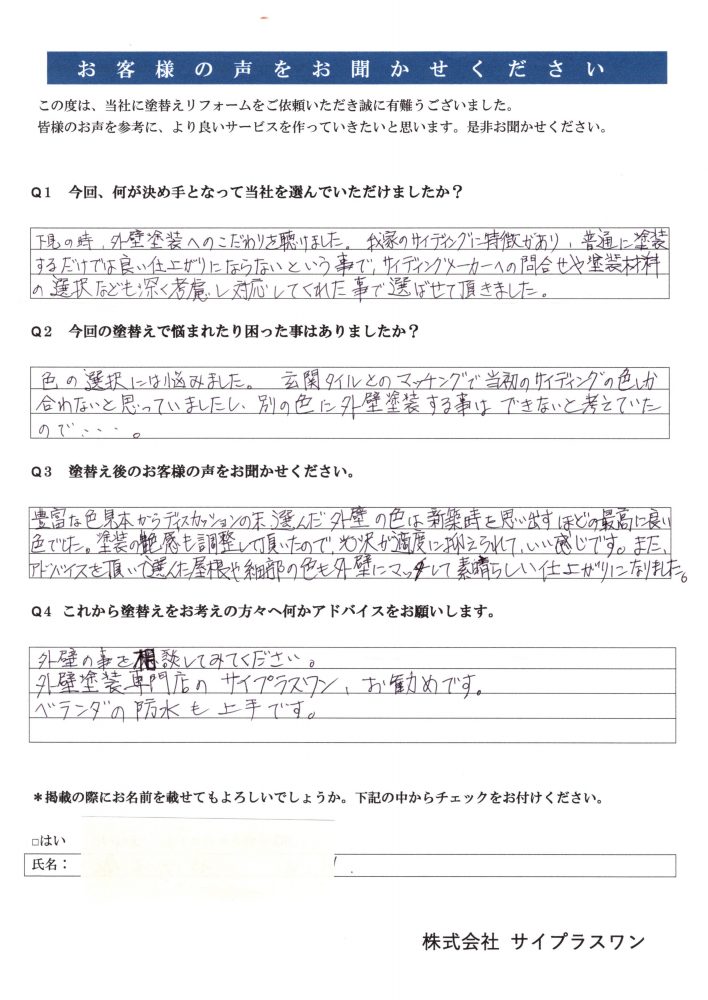 お客様の声をお聞かせください
この度は、当社に塗替えリフォームをご依頼いただき誠に有難うございました。
皆様のお声を参考に、より良いサービスを作っていきたいと思います。是非お聞かせください。
Q1 今回、何が決め手となって当社を選んでいただけましたか？
下見の時、外壁塗装へのこだわりを聴けました。我家のサイディングに特徴があり、普通に塗装
するだけでは良い仕上がりにならないという事で、サイディングメーカーへの問合せや塗装材料
の選択なども深く考慮し対応してくれた事で選ばせて頂きました。
Q2 今回の塗替えで悩まれたり困った事はありましたか？
色の選択には悩みました。玄関タイルとのマッチングで当初のサイディングの色しか
合わないと思っていましたし、別の色に外壁塗装する事はできないと考えていた
ので・・・。
Q3 塗替え後のお客様の声をお聞かせください。
豊富な色見本からディスカッションの末選んだ外壁の色は新築時を思い出すほどの最高に良い
色でした。塗装の艶感も調整して頂いたので、光沢が適度に抑えられて、いい感じです。また、
アドバイスを頂いて選んだ屋根や細部の色も外壁にマッチして素晴らしい仕上がりになりました。
Q4 これから塗替えをお考えの方々へ何かアドバイスをお願いします。
外壁の事を相談してみてください。
外壁塗装専門店のサイプラスワン、お勧めです。
ベランダの防水も上手です。
＊掲載の際にお名前を載せてもよろしいでしょうか。下記の中からチェックをお付けください。
□はい
氏名：
株式会社 サイプラスワン